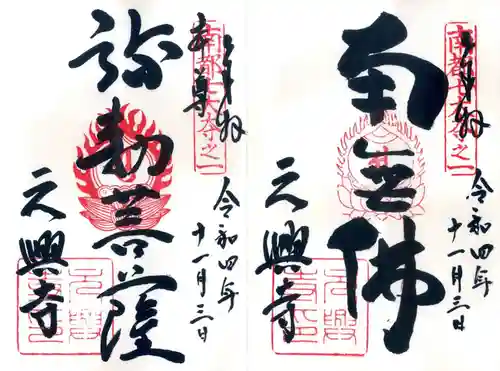 奉拝
南都七大寺之一
南無佛
令和四年
十一月三日
元興寺
奉拝
本尊
南都七大寺之一
弥勒菩薩
令和四年
十一月三日
元興寺